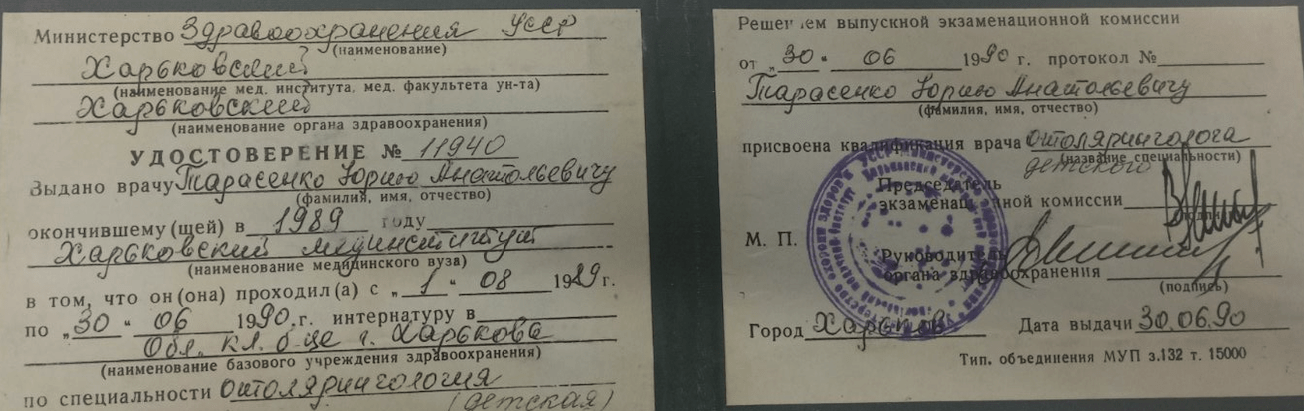 Министерство Здравоохранения УССР
(наименование)
Харьковский
(наименование мед. института, мед. факультета ун-та)
Харьковский
(наименование органа здравоохранения)
УДОСТОВЕРЕНИЕ № 11940
Выдано врачу Тарасенко Юрию Анатольевичу
(фамилия, имя, отчество)
окончившему (шей) в 1989 году
Харьковский мединститут
(наименование медицинского вуза)
в том, что он (она) проходил(а) с „1“ 08 1989 г.
по „30“ 06 1990 г. интернатуру в
Обл. кл. б-це г. Харькова
(наименование базового учреждения здравоохранения)
по специальности отолярингология
(детская)
Решением выпускной экзаменационной комиссии
от „30“ 06 1990 г. протокол №
Тарасенко Юрию Анатольевичу
(фамилия, имя, отчество)
присвоена квалификация врача отоляринголога
(название специальности)
детского
Председатель
экзаменационной комиссии
(подпись)
М. П.
Руководитель
органа здравоохранения
(подпись)
Город Харьков Дата выдачи 30.06.90
Тип. объединения МУП з.132 т. 15000